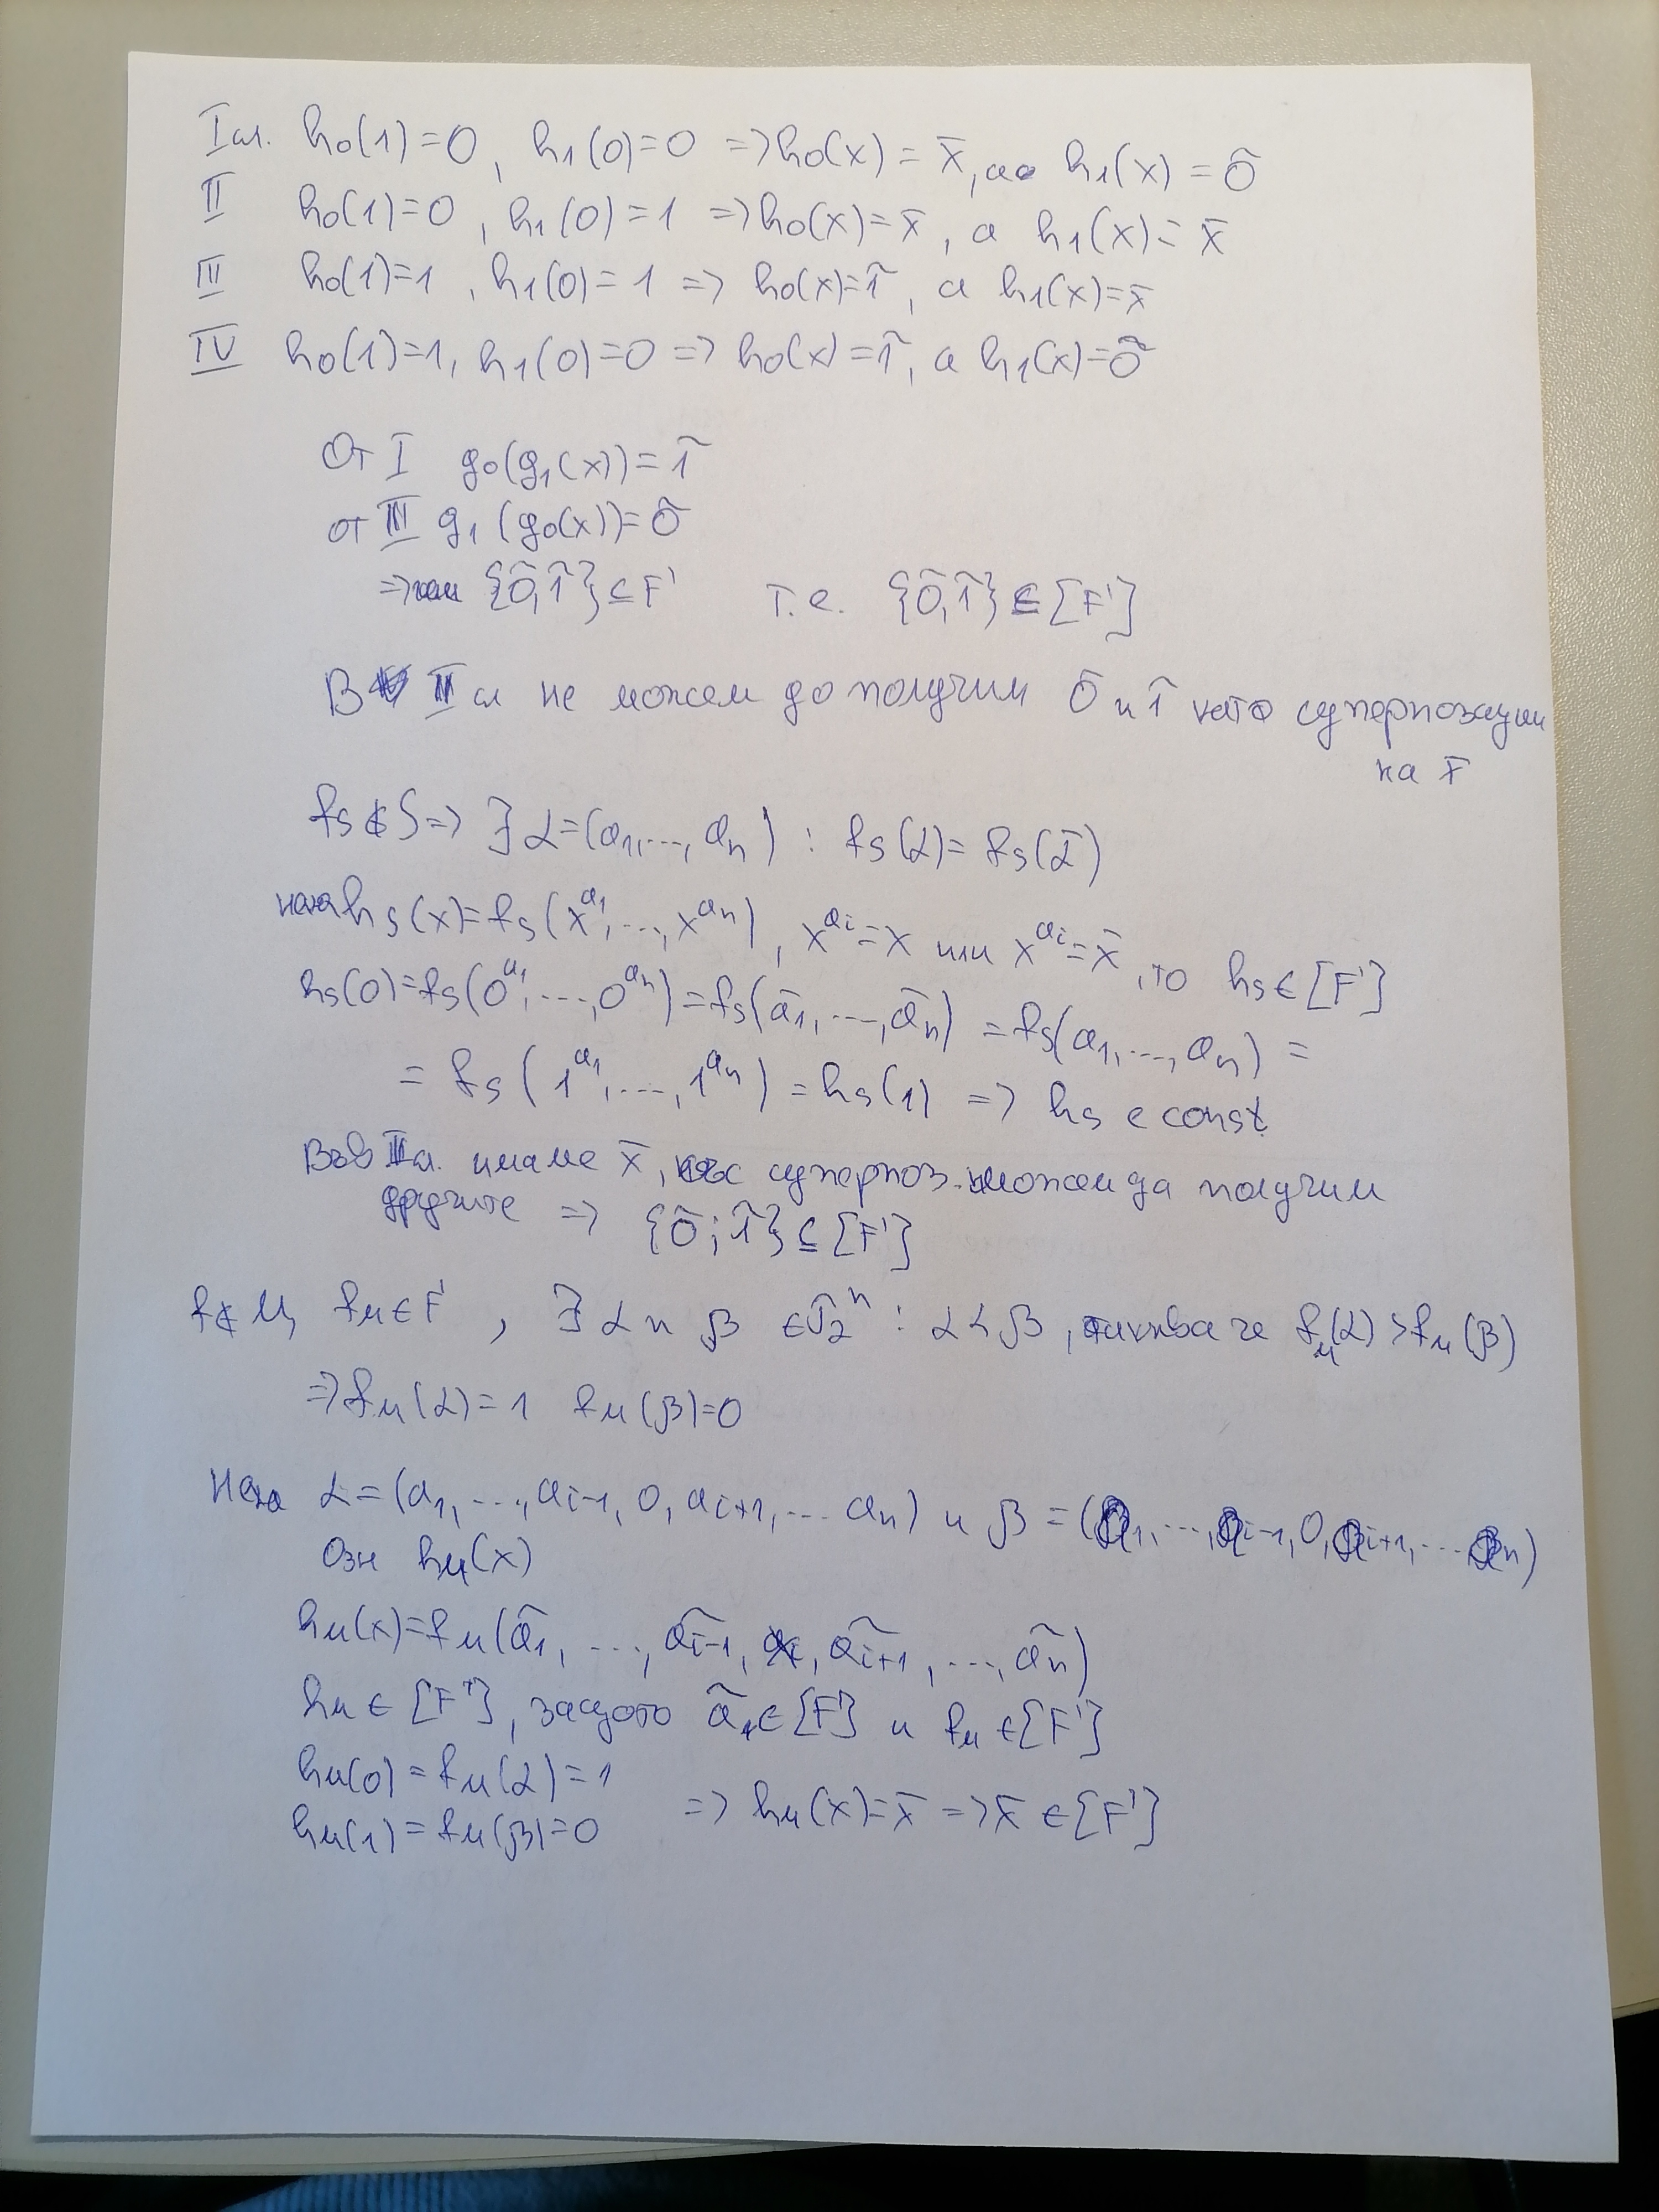 I сл. h₀(1)=0, h₁(0)=0 => h₀(x) = x̄, а h₁(x) = 0̃
II h₀(1)=0, h₁(0)=1 => h₀(x)=x̄, а h₁(x)=x̄
III h₀(1)=1, h₁(0)=1 => h₀(x)=1̃, а h₁(x)=x̄
IV h₀(1)=1, h₁(0)=0 => h₀(x)=1̃, а h₁(x)=0̃
От I g₀(g₁(x))=1̃
от III g₁(g₀(x))=0̃
=> {0̃,1̃}⊆F' т.е. {0̃,1̃}⊆[F']
В II сл не можем да получим 0̃ и 1̃ като суперпозации
на x̄
fs∉S => ∃α=(a₁,...,aₙ) : fs(α)=fs(ᾱ)
нека hs(x)=fs(x^a₁,...,x^aₙ), x^aᵢ=x или x^aᵢ=x̄, то hs∈[F']
hs(0)=fs(0^a₁,...,0^aₙ)=fs(ā₁,...,āₙ)=fs(a₁,...,aₙ)=
=fs(1^a₁,...,1^aₙ)=hs(1) => hs е const
Във II сл. имаме x̄, със суперпоз. можем да получим
другите => {0̃;1̃}⊆[F']
f∉M, fм∈F', ∃α и β ∈J₂ⁿ : α<β, такива че fм(α)>fм(β)
=> fм(α)=1 fм(β)=0
Нека α=(a₁,...,aᵢ₋₁,0,aᵢ₊₁,...aₙ) и β=(a₁,...,aᵢ₋₁,0,aᵢ₊₁,...aₙ)
Озн hм(x)
hм(x)=fм(ã₁,...,ãᵢ₋₁,x,ãᵢ₊₁,...,ãₙ)
hм∈[F'], защото ã₁∈[F'] и fм∈[F']
hм(0)=fм(α)=1
hм(1)=fм(β)=0 => hм(x)=x̄ => x̄∈[F']